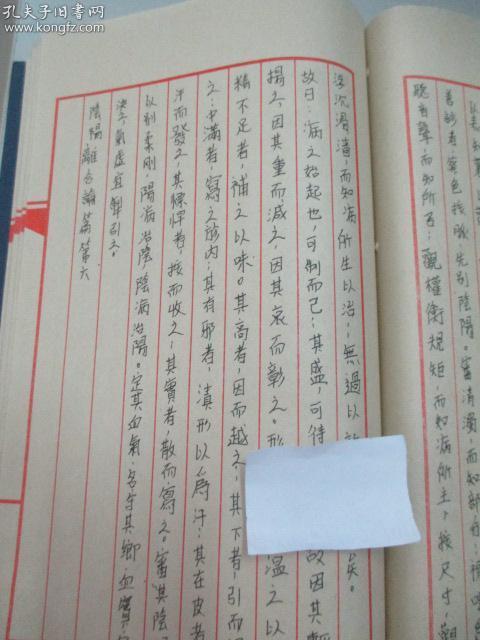 善診者,察色按脈,先別陰陽。審清濁,而知部分;視喘
聽音聲,而知所苦;觀權衡規矩,而知病所主;按尺寸,觀
浮沉滑濇,而知病所生以治;無過以診矣。
故曰:病之始起也,可刺而已;其盛,可待故因其輕
揚之,因其重而減之,因其衰而彰之。形溫之以
精不足者,補之以味。其高者,因而越之;其下者,引而
之;中滿者,寫之於內;其有邪者,漬形以為汗;其在皮者
汗而發之,其慓悍者,按而收之;其實者,散而寫之。審其陰
以別柔剛,陽病治陰,陰病治陽。定其血氣,各守其鄉,血實
決之,氣虛宜掣引之。
陰陽離合論篇第六
孔夫子旧书网
www.kongfz.com